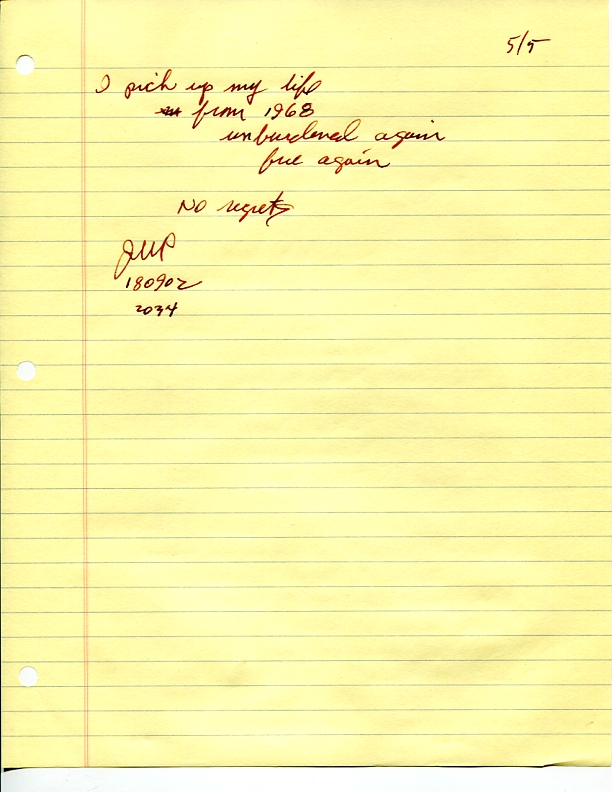 5/5
I pick up my life
from 1968
unburdened again
free again
No regrets
JWP
180902
2034